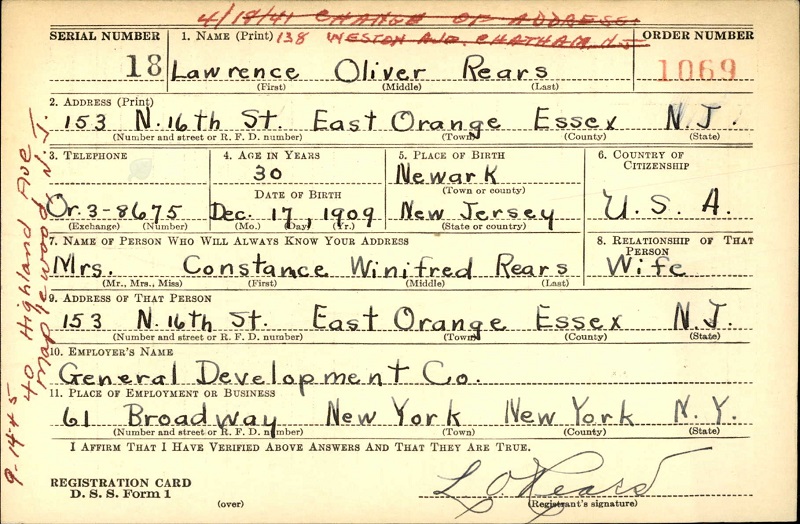 4/18/41 CHANGE OF ADDRESS.
138 WESTON AVE. CHATHAM, N J
SERIAL NUMBER 1. NAME (Print) ORDER NUMBER
18 Lawrence Oliver Rears 1069
(First) (Middle) (Last)
2. ADDRESS (Print)
153 N. 16th St. East Orange Essex N.J.
(Number and street or R. F. D. number) (Town) (County) (State)
3. TELEPHONE 4. AGE IN YEARS 5. PLACE OF BIRTH 6. COUNTRY OF CITIZENSHIP
30 Newark
(Town or county)
DATE OF BIRTH
Or. 3-8675 Dec. 17, 1909 New Jersey U. S. A.
(Exchange) (Number) (Mo.) (Day) (Yr.) (State or country)
7. NAME OF PERSON WHO WILL ALWAYS KNOW YOUR ADDRESS 8. RELATIONSHIP OF THAT PERSON
Mrs. Constance Winifred Rears Wife
(Mr., Mrs., Miss) (First) (Middle) (Last)
9. ADDRESS OF THAT PERSON
153 N. 16th St. East Orange Essex N.J.
(Number and street or R. F. D. number) (Town) (County) (State)
10. EMPLOYER'S NAME
General Development Co.
11. PLACE OF EMPLOYMENT OR BUSINESS
61 Broadway New York New York N.Y.
(Number and street or R. F. D. number) (Town) (County) (State)
I AFFIRM THAT I HAVE VERIFIED ABOVE ANSWERS AND THAT THEY ARE TRUE.
REGISTRATION CARD
D. S. S. Form 1
(over)
L. O. Rears
(Registrant's signature)
9-14-45 40 Highland Ave
Maplewood N. J.